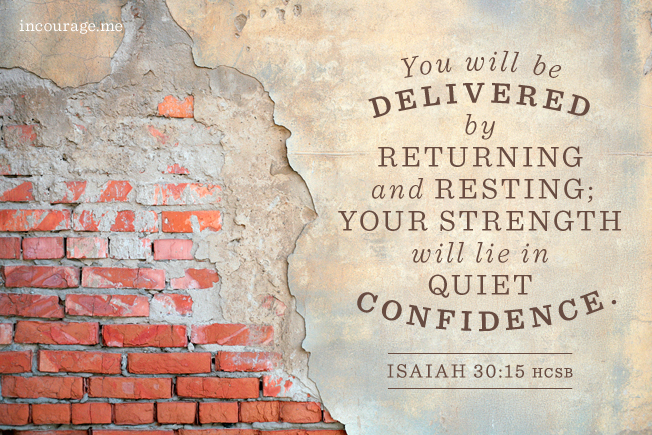 incourage.me
You will be
DELIVERED
by
RETURNING
and RESTING;
YOUR STRENGTH
will lie in
QUIET
CONFIDENCE.
ISAIAH 30:15 HCSB